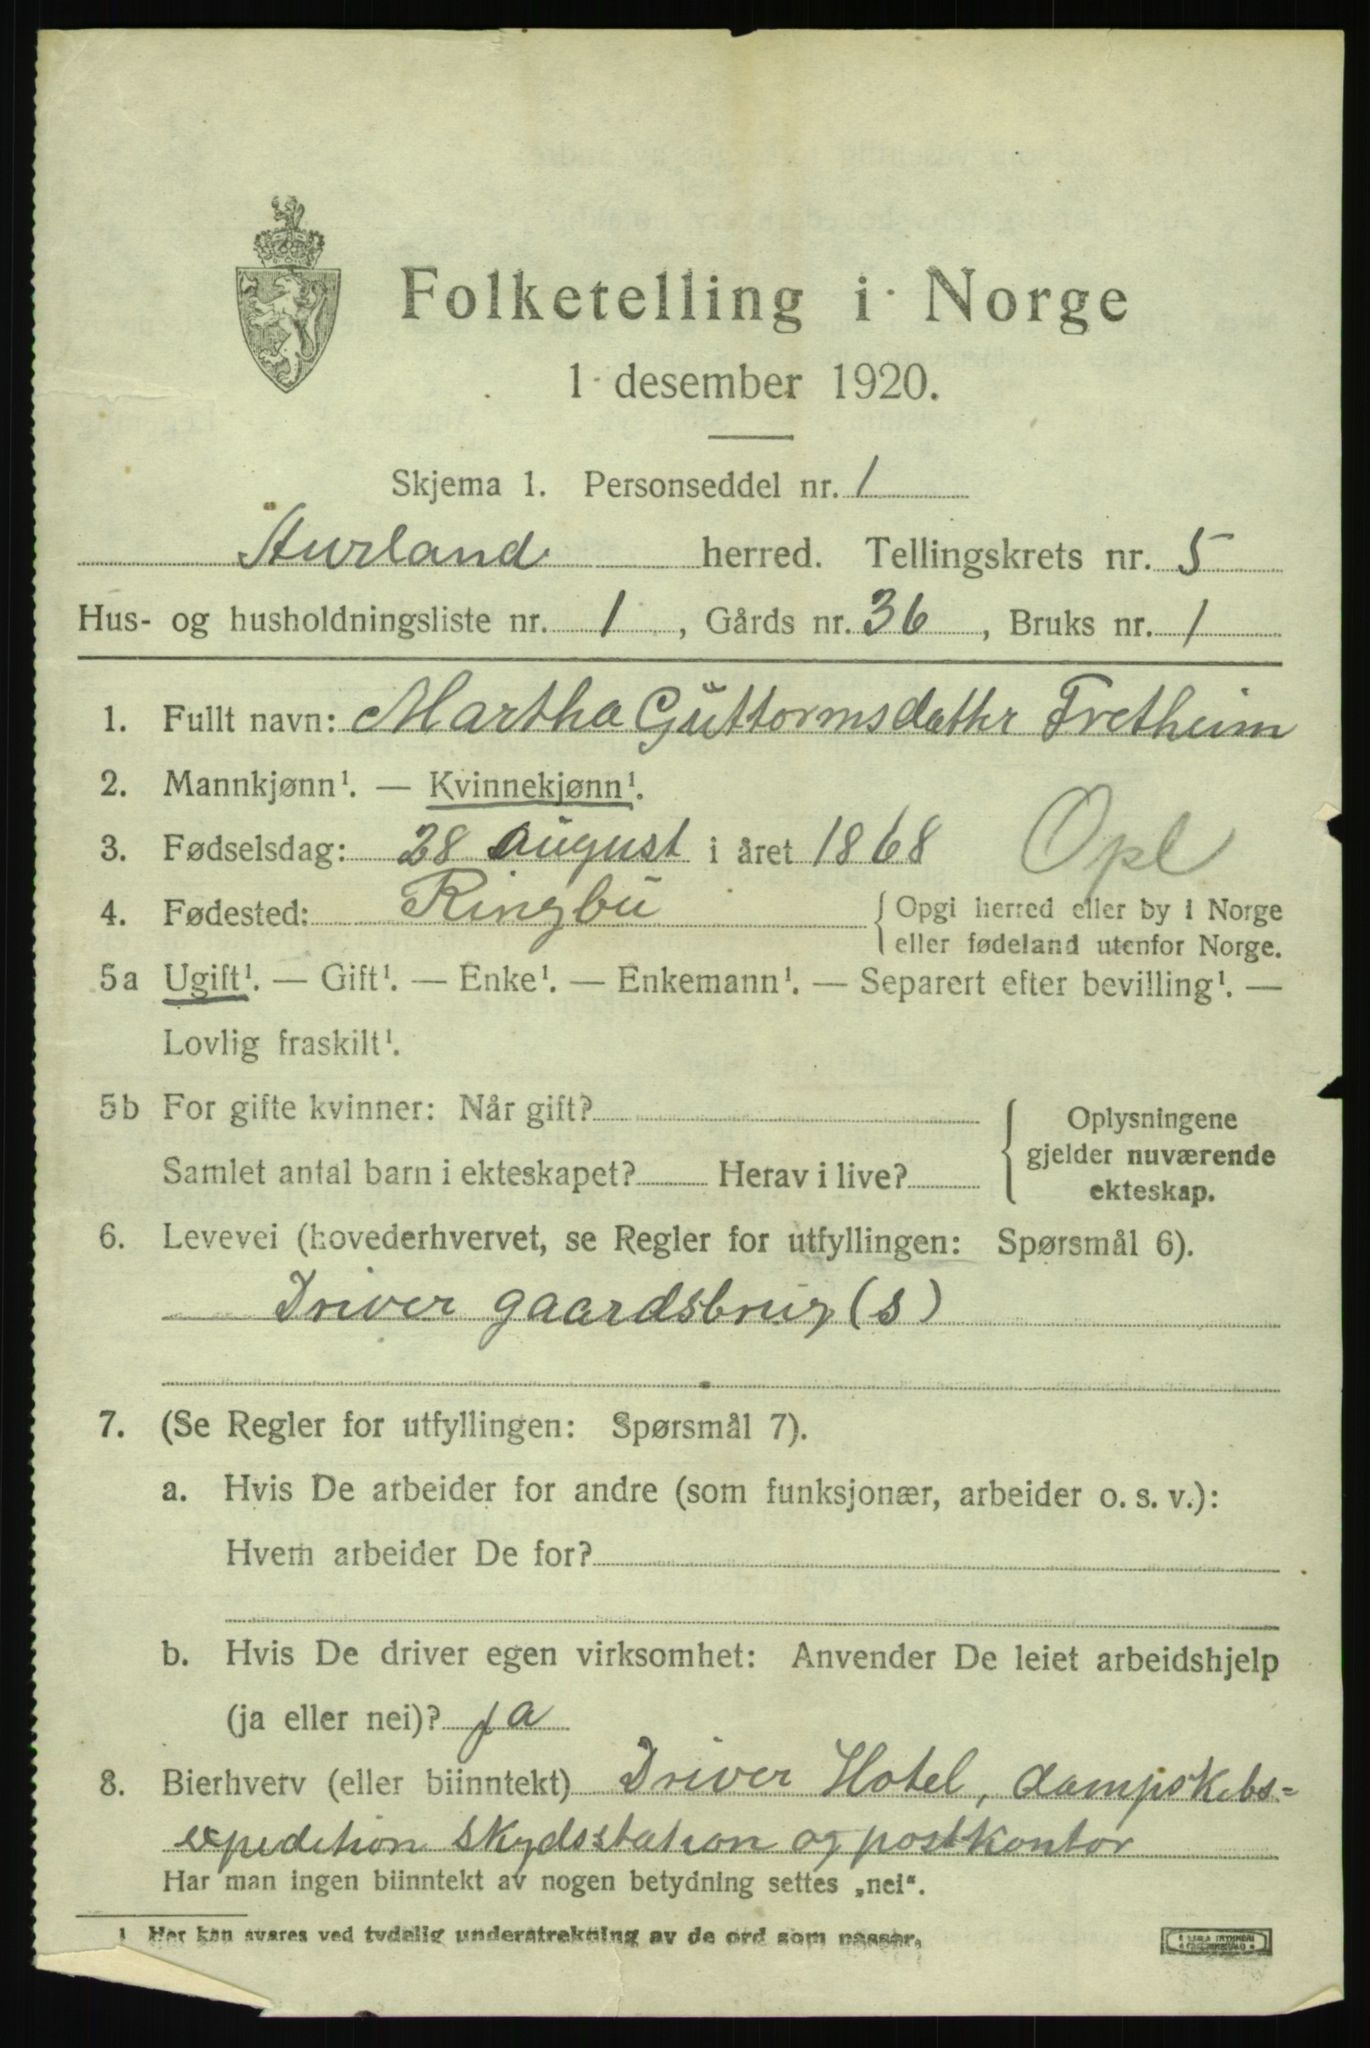 Folketelling i Norge
1 desember 1920.
Skjema 1. Personseddel nr. 1
Aurland herred. Tellingskrets nr. 5
Hus- og husholdningsliste nr. 1, Gårds nr. 36, Bruks nr. 1
1. Fullt navn: Martha Guttormsdatter Fretheim
2. Mannkjønn¹. — Kvinnekjønn¹.
3. Fødselsdag: 28 august i året 1868 Opl
4. Fødested: Ringbu {Opgi herred eller by i Norge
eller fødeland utenfor Norge.
5a Ugift¹. — Gift¹. — Enke¹. — Enkemann¹. — Separert efter bevilling¹. —
Lovlig fraskilt¹.
5b For gifte kvinner: Når gift?
Samlet antal barn i ekteskapet? Herav i live?
{ Oplysningene
gjelder nuværende
ekteskap.
6. Levevei (hovederhvervet, se Regler for utfyllingen: Spørsmål 6).
Driver gaardsbrug (s)
7. (Se Regler for utfyllingen: Spørsmål 7).
a. Hvis De arbeider for andre (som funksjonær, arbeider o. s. v.):
Hvem arbeider De for?
b. Hvis De driver egen virksomhet: Anvender De leiet arbeidshjelp
(ja eller nei)? ja
8. Bierhverv (eller biinntekt) Driver Hotel, dampskibs=
expedition skydsstation og postkontor
Har man ingen biinntekt av nogen betydning settes „nei“.
1 Her kan svares ved tydelig understrekning av de ord som passer.